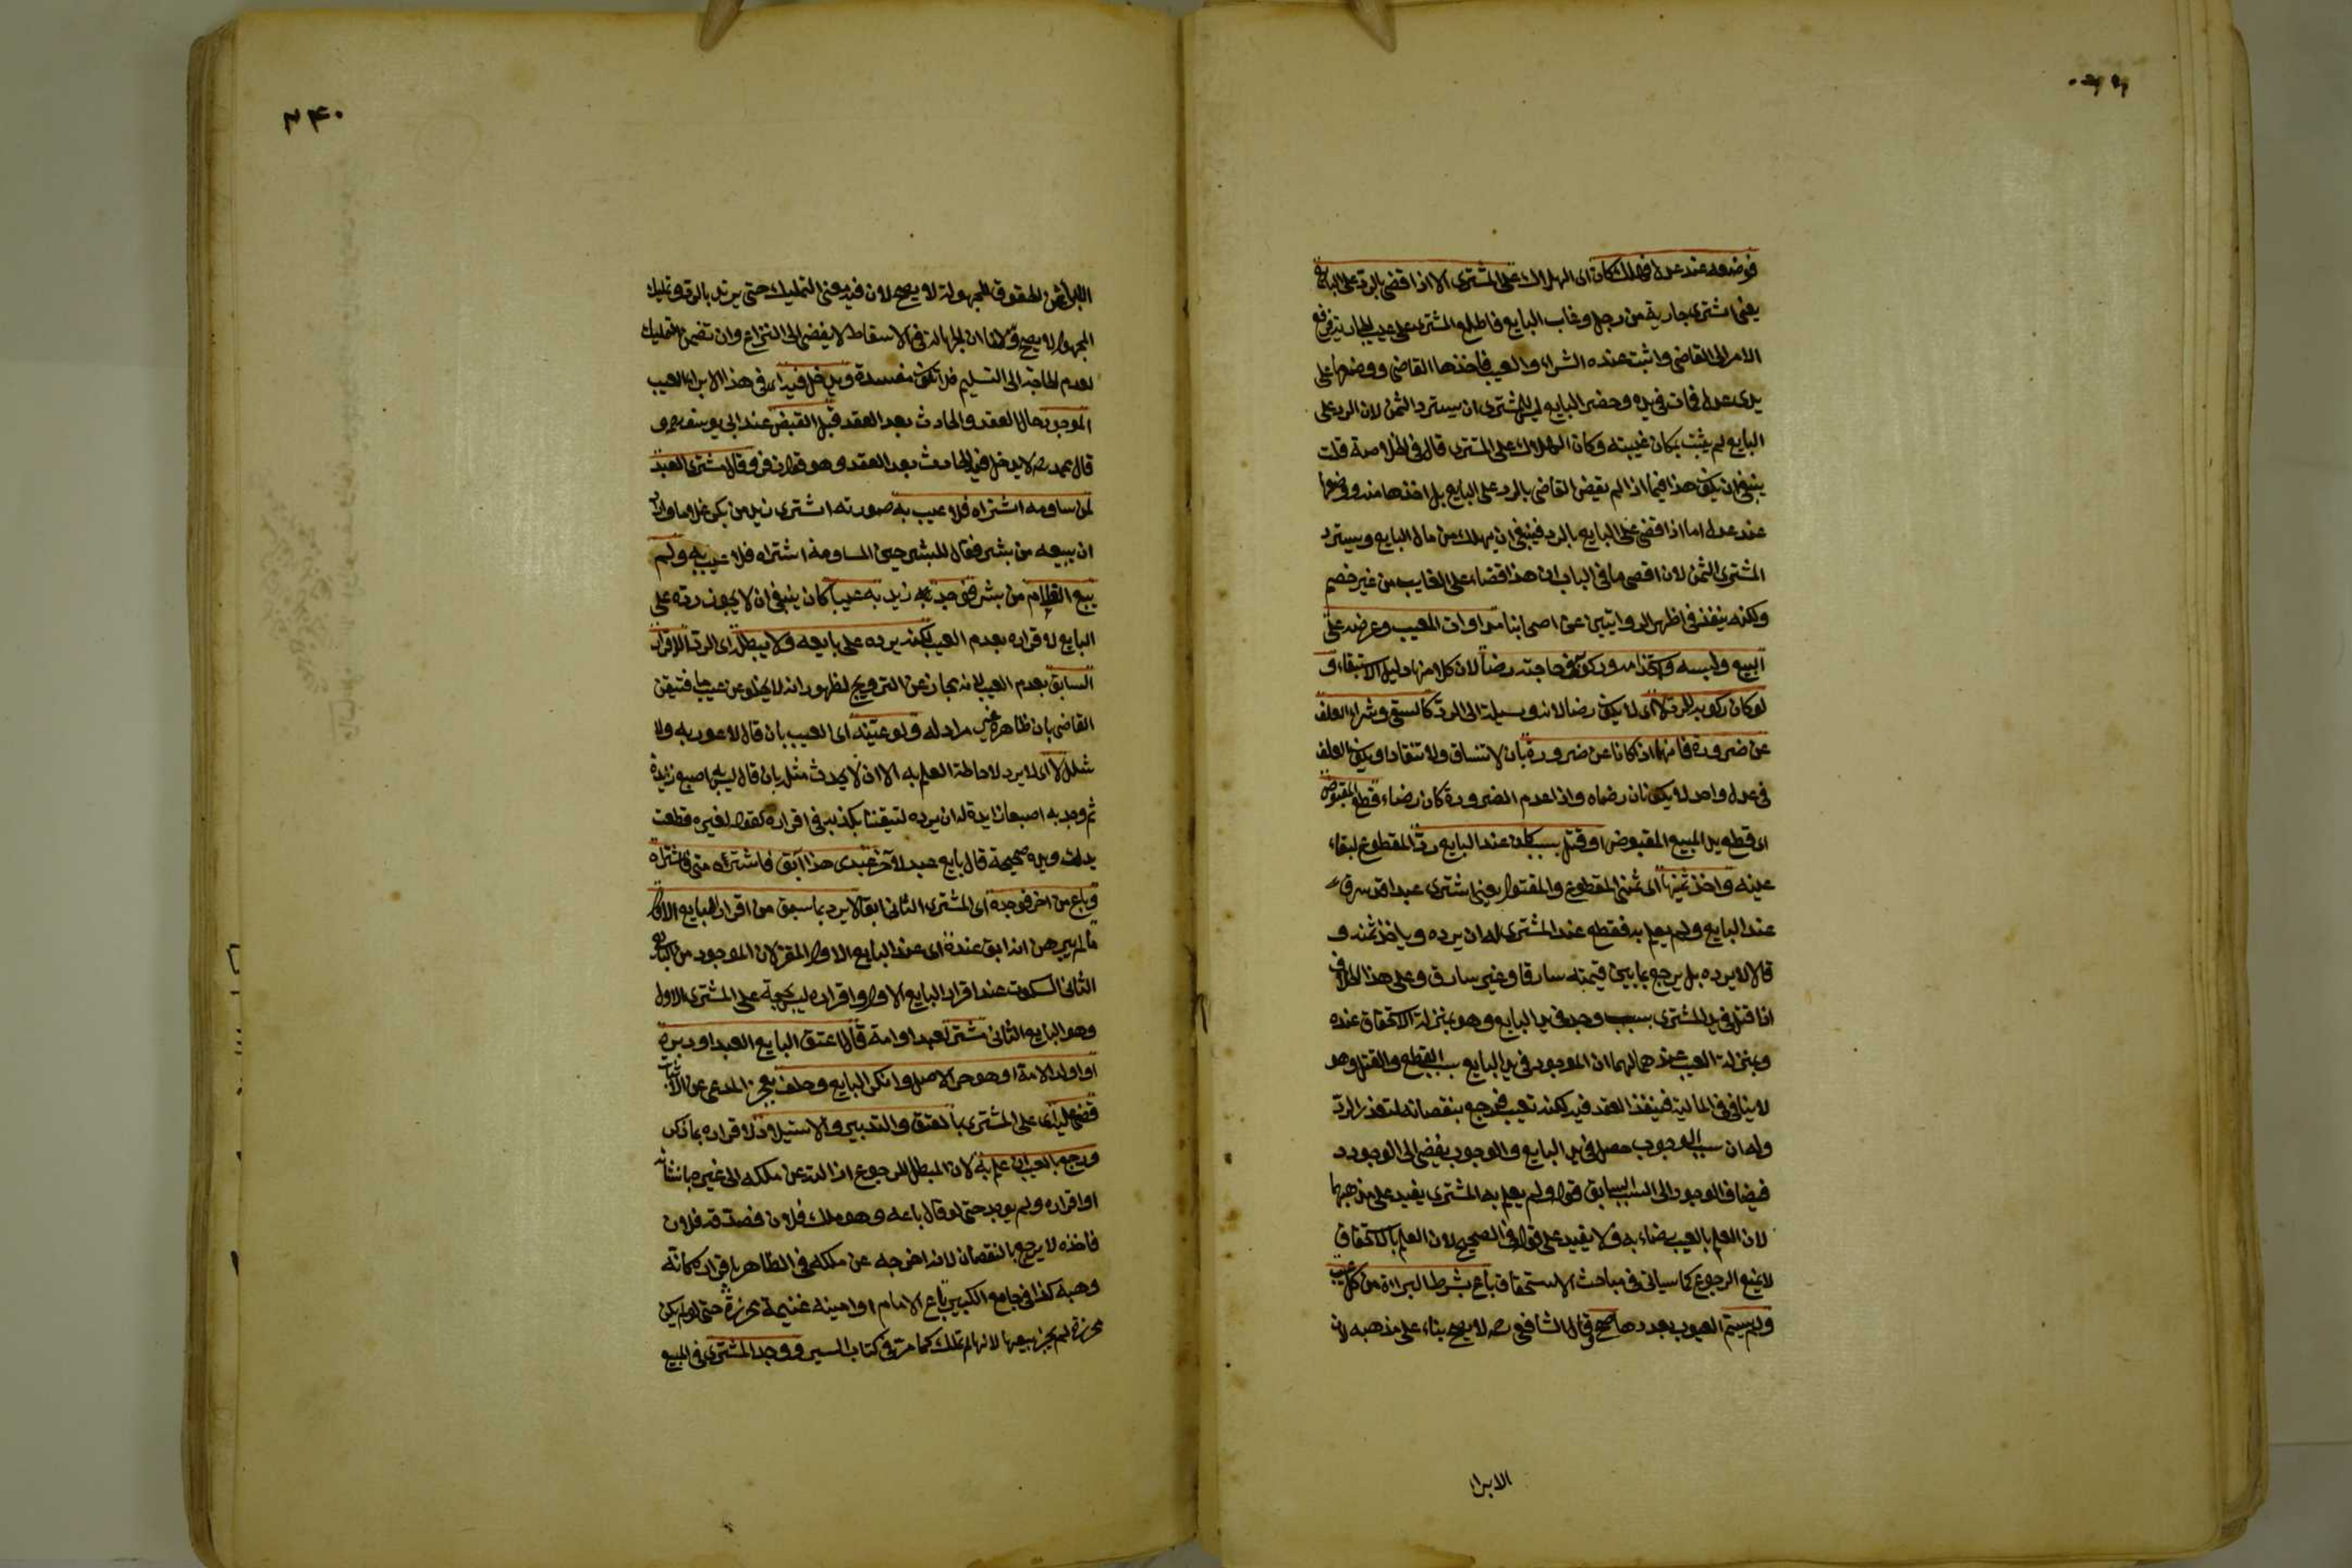 فوضعه عند عدل فهلك كان اى الهلاك على المشترى الا اذا قضى بالرد على البايع
يعنى اشترى جارية من رجل وغاب البايع فاطلع المشترى على عيب الجارية فرفع
الامر الى القاضى واثبت عنده الشراء والعيب فاخذها القاضى ووضعها على
يدى عدل فمات فى يده وحضر البايع ليس للمشترى ان يسترد الثمن لان الرد على
البايع لم يثبت بمكان غيبته وكان الهلاك على المشترى قال فى الخلاصة قلت
ينبغى ان يكون هذا فيما اذا لم يقض القاضى بالرد على البايع بل اخذها منه ووضعها
عند عدل اما اذا قضى على البايع بالرد فينبغى ان يهلك من مال البايع ويسترد
المشترى الثمن لان اقصى ما فى الباب ان هذا قضاء على الغايب من غير خصم
ولكنه ينفذ فى اظهر الروايتين عن اصحابنا مداواة المعيب وعرضه على
البيع ولبسه واستخدامه وركوبه فى حاجته رضا لان كلا منها دليل الاستبقاء و
لو كان ركوبه للرد لا اى لا يكون رضا لانه وسيلة الى الرد كالسقى وشراء العلف
عن ضرورة فانهما اذا كانا عن ضرورة بان لا تنساق ولا تنقاد او يكون العلف
فى عدل واحد لا يكونان رضاء واذا عدم الضرورة كان رضاء قطع المقبوض
اى قطع يد المبيع المقبوض او قتل بسبب كان عند البايع رد المقطوع لبقاء
عينه واخذ ثمنهما اى ثمنى المقطوع والمقتول يعنى اشترى عبدا قد سرق
عند البايع ولم يعلم به فقطع عند المشترى له ان يرده وياخذ ثمنه و
قالا لا يرده بل يرجع بما بين قيمته سارقا وغير سارق وعلى هذا الخلاف
اذا قتل فى يد المشترى بسبب وجد فى يد البايع وهو بمنزلة الاستحقاق عنده
وبمنزلة العيب عندهما لهما ان الموجود فى يد البايع سبب القطع والقتل وهو
لا ينافى المالية فينفذ العقد فيه لكنه تعيب فيرجع بنقصانه لتعذر الرد
وله ان سبب الوجوب حصل فى يد البايع والوجوب يفضى الى الوجود
فيضاف الوجود الى السبب السابق قوله ولم يعلم به المشترى يفيد على مذهبهما
لان العلم بالعيب رضاء به ولا يفيد على قوله فى الصحيح لان العلم بالاستحقاق
لا يمنع الرجوع كما سياتى فى مباحث الاستحقاق باع بشرط البراءة من كل عيب
ولم يسم العيوب بعددها صح وقال الشافعى رح لا يصح بناء على مذهبه لان
الابراء
٣٤٠
الابراء عن الحقوق المجهولة لا يصح لان فيه معنى التمليك حتى يرتد بالرد وتمليك
المجهول لا يصح ولنا ان الجهالة فى الاسقاط لا يفضى الى النزاع وان تضمن التمليك
لعدم الحاجة الى التسليم فلا تكون مفسدة ويدخل فيه اى فى هذا الابراء العيب
الموجود حال العقد والحادث بعد العقد قبل القبض عند ابى يوسف رح و
قال محمد رح لا يدخل فيه الحادث بعد العقد وهو قول زفر وقال مشترى العبد
لمن ساومه اشتراه فلا عيب به صورته اشترى زيد من بكر غلاما واراد
ان يبيعه من بشر فقال لبشر حين المساومة اشتراه فلا عيب به ولم
يبع الغلام من بشر فوجد زيد به عيبا كان ينبغى ان لا يجوز رده على
البايع لاقراره بعدم العيب لكنه يرده على بايعه ولا يبطل اى الرد الاقرار
السابق بعدم العيب لانه مجاز عن الترويج لظهور انه لا يخلو عن عيب ما فتيقن
القاضى بان ظاهره غير مراد له ولو عينه اى العيب بان قال لا عور به ولا
شلل لا اى لا يرد لاحاطة العلم به الا ان لا يحدث مثله بان قال ليس به اصبع زايدة
ثم وجد به اصبعا زايدة له ان يرده لتيقننا بكذبه فى اقراره كقوله لغيره قطعت
يدك ويده صحيحة قال بايع عبد لآخر عبدى هذا آبق فاشتره منى فاشتراه
وباع من آخر فوجده اى المشترى الثانى ابقا لا يرد بما سبق من اقرار البايع الاول
ما لم يبرهن انه ابق عنده اى عند البايع الاول المقر لان الموجود من البايع
الثانى السكوت عند اقرار البايع الاول واقراره ليس بحجة على المشترى الاول
وهو البايع الثانى مشتر لعبد او امة قال اعتق البايع العبد او دبره
او اولد الامة او هو حر الاصل وانكر البايع وحلف بعجز المدعى عن الاثبات
قضى عليه اى على المشترى بالعتق والتدبير والاستيلاد لاقراره بما ذكر
ورجع بالعيب ان علم به لان المبطل للرجوع ازالته عن ملكه الى غيره بانشائه
او اقراره ولم يوجد حتى لو قال باعه وهو ملك فلان فصدقه فلان
فاخذه لا يرجع بالنقصان لانه اخرجه عن ملكه فى الظاهر باقراره كانه
وهبه كذا فى جامع الكبير باع الامام او امينه غنيمة محرزة حتى لو لم يكن
محرزة لم يجز بيعها لانها لم تملك كما مر فى كتاب السير ووجد المشترى فى المبيع